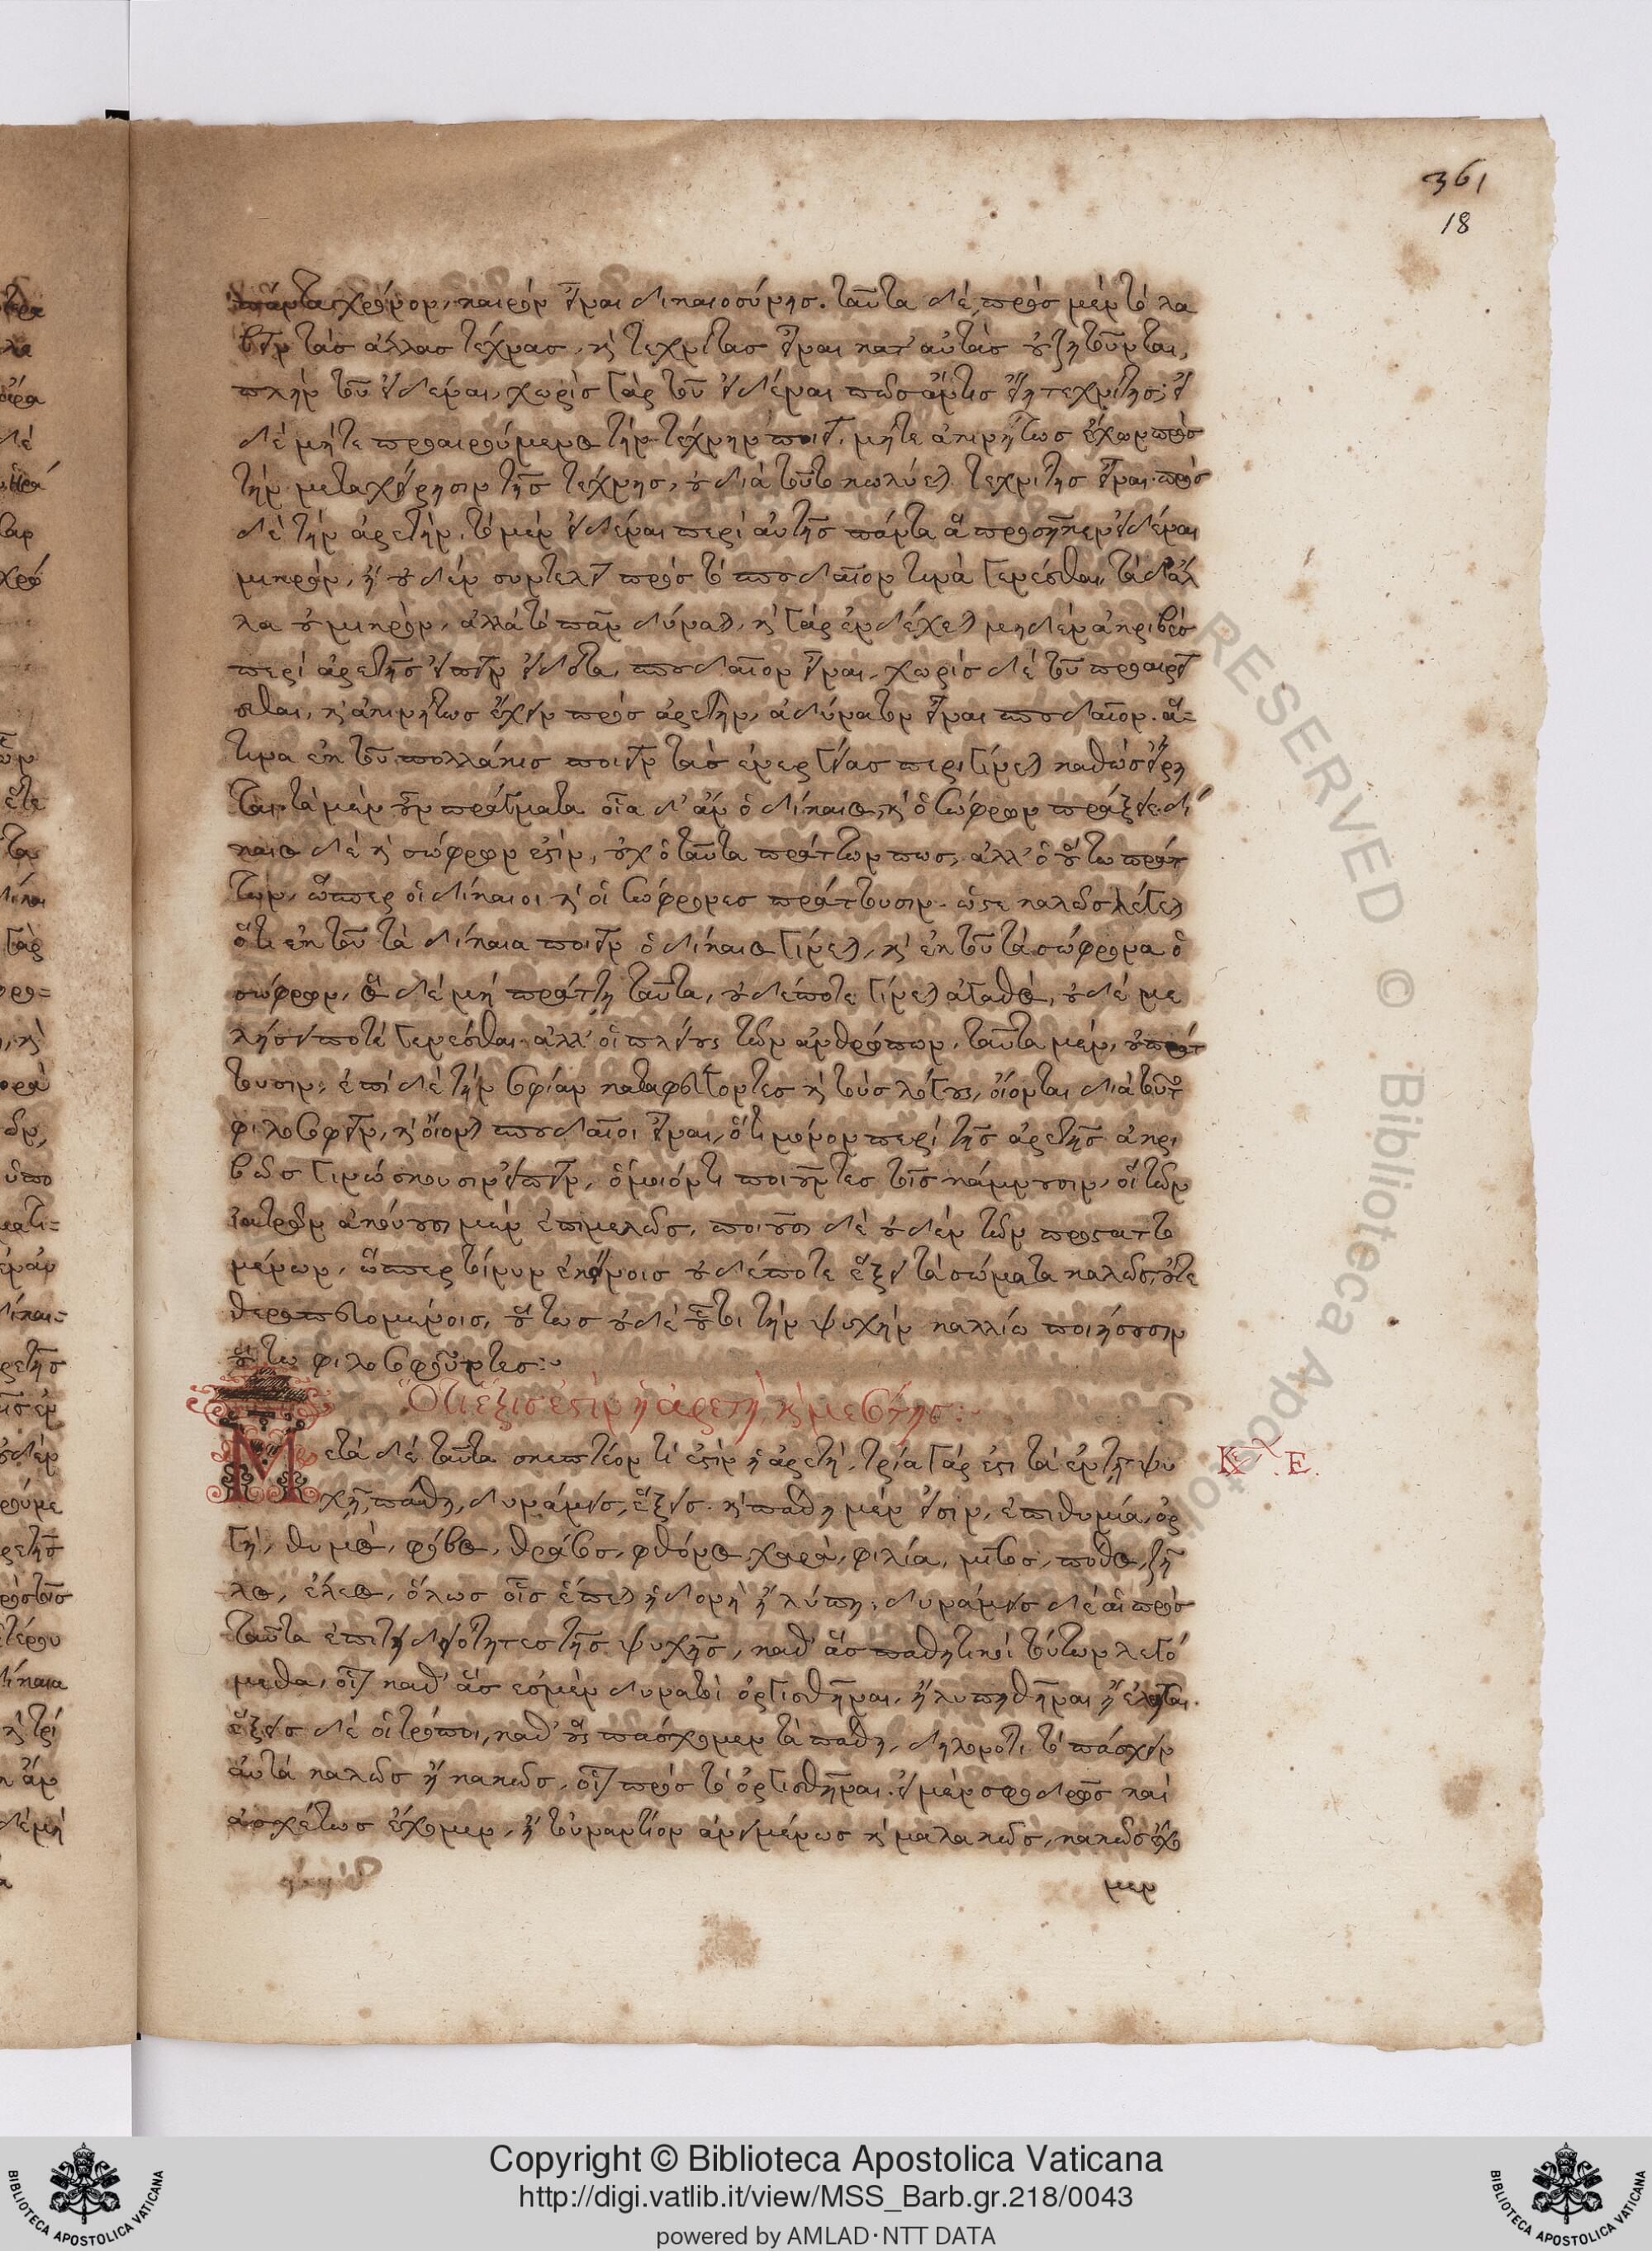 361
18
πάντα χρόνον, καιρὸν εἶναι δικαιοσύνης. ταῦτα δὲ πρὸς μὲν τὸ λα
βεῖν τὰς ἄλλας τέχνας, κὶ τεχνίτας εἶναι κατ' αὐτὰς οὐ ζητοῦνται,
πλὴν τοῦ εἰδέναι, χωρὶς γὰρ τοῦ εἰδέναι πῶς ἄν τις εἴη τεχνίτης; εἰ
δὲ μήτε προαιρούμενος τὴν τέχνην ποιεῖ, μήτε ἀκινήτως ἔχων πρὸς
τὴν μεταχείρησιν τῆς τέχνης, οὐ διὰ τοῦτο κωλύεται τεχνίτης εἶναι. πρὸς
δὲ τὴν ἀρετὴν, τὸ μὲν εἰδέναι περὶ αὐτῆς πάντα ἃ προσῆκεν εἰδέναι
μικρὸν, ἢ οὐδὲν συντελεῖ πρὸς τὸ σπουδαῖόν τινα γενέσθαι, τὰ δ' ἄλ
λα οὐ μικρὸν, ἀλλὰ τὸ πᾶν δύναται, κὶ γὰρ ἐνδέχεται μηδὲν ἀκριβὲς
περὶ ἀρετῆς εἰπεῖν εἰδότα, σπουδαῖον εἶναι, χωρὶς δὲ τοῦ προαιρεῖ
σθαι, κὶ ἀκινήτως ἔχειν πρὸς ἀρετὴν, ἀδύνατον εἶναι σπουδαῖον. ἅ-
τινα ἐκ τοῦ πολλάκις ποιεῖν τὰς ἐνεργείας περιγίνεται καθὼς εἴρη
ται, τὰ μὲν οὖν πράγματα οἷα δ' ἂν ὁ δίκαιος, κὶ ὁ σώφρων πράξειε. δί
καιος δὲ κὶ σώφρων ἐστὶν, οὐχ ὁ ταῦτα πράττων πως, ἀλλ' ὁ οὕτω πράτ
των, ὥσπερ οἱ δίκαιοι κὶ οἱ σώφρονες πράττουσιν. ὥστε καλῶς λέγεται
ὅτι ἐκ τοῦ τὰ δίκαια ποιεῖν ὁ δίκαιος γίνεται, κὶ ἐκ τοῦ τὰ σώφρονα ὁ
σώφρων, ὃς δὲ μὴ πράττη ταῦτα, οὐδέποτε γίνεται ἀγαθὸς, οὐδὲ με
λήσει ποτὲ γενέσθαι. ἀλλ' οἱ πλείους τῶν ἀνθρώπων, ταῦτα μὲν, οὐ πράτ
τουσιν, ἐπὶ δὲ τὴν σοφίαν καταφεύγοντες κὶ τοὺς λόγους, οἴονται διὰ τοῦτο
φιλοσοφεῖν, κὶ οἴονται σπουδαῖοι εἶναι, ὅτι μόνον περὶ τῆς ἀρετῆς ἀκρι
βῶς γινώσκουσιν εἰπεῖν, ὅμοιόν τι ποιοῦντες τοῖς κάμνουσιν, οἳ τῶν
ἰατρῶν ἀκούουσι μὲν ἐπιμελῶς, ποιοῦσι δὲ οὐδὲν τῶν προσταττο
μένων, ὥσπερ τοίνυν ἐκείνοις οὐδέποτε ἕξει τὰ σώματα καλῶς, οὔτε
θεραπευομένοις, οὕτως οὐδὲ οὗτοι τὴν ψυχὴν καλλίω ποιήσουσιν
οὕτω φιλοσοφοῦντες:
Ὅτι ἕξις ἐστὶν ἡ ἀρετὴ, κὶ μεσότης:
Μετὰ δὲ ταῦτα σκεπτέον τί ἐστὶν ἡ ἀρετή. τρία γάρ ἐστι τὰ ἐν τῇ ψυ
Κε. Ε.
χῇ, πάθη, δυνάμεις, ἕξεις. κὶ πάθη μέν εἰσιν, ἐπιθυμία, ὀρ
γὴ, θυμὸς, φόβος, θράσος, φθόνος, χαρὰ, φιλία, μῖσος, πόθος, ζῆ
λος, ἔλεος, ὅλως οἷς ἕπεται ἡδονὴ ἢ λύπη, δυνάμεις δὲ αἱ πρὸς
ταῦτα ἐπιτηδειότητες τῆς ψυχῆς, καθ' ἃς παθητικοὶ τούτων λεγό
μεθα, οἷον καθ' ἃς ἐσμὲν δυνατοὶ ὀργισθῆναι, ἢ λυπηθῆναι ἢ ἐλεῆσαι.
ἕξεις δὲ οἱ τρόποι, καθ' οὓς πάσχομεν τὰ πάθη, δηλονότι τὸ πάσχειν
αὐτὰ καλῶς ἢ κακῶς, οἷον πρὸς τὸ ὀργισθῆναι. εἰ μὲν σφοδρῶς καὶ
ἀσχέτως ἔχομεν, ἢ τοὐναντίον ἀνειμένως κὶ μαλακῶς, κακῶς ἔχο
μεν
RESERVED © Biblioteca Apostolica
Copyright © Biblioteca Apostolica Vaticana
http://digi.vatlib.it/view/MSS_Barb.gr.218/0043
powered by AMLAD·NTT DATA
BIBLIOTECA APOSTOLICA VATICANA
BIBLIOTECA APOSTOLICA VATICANA